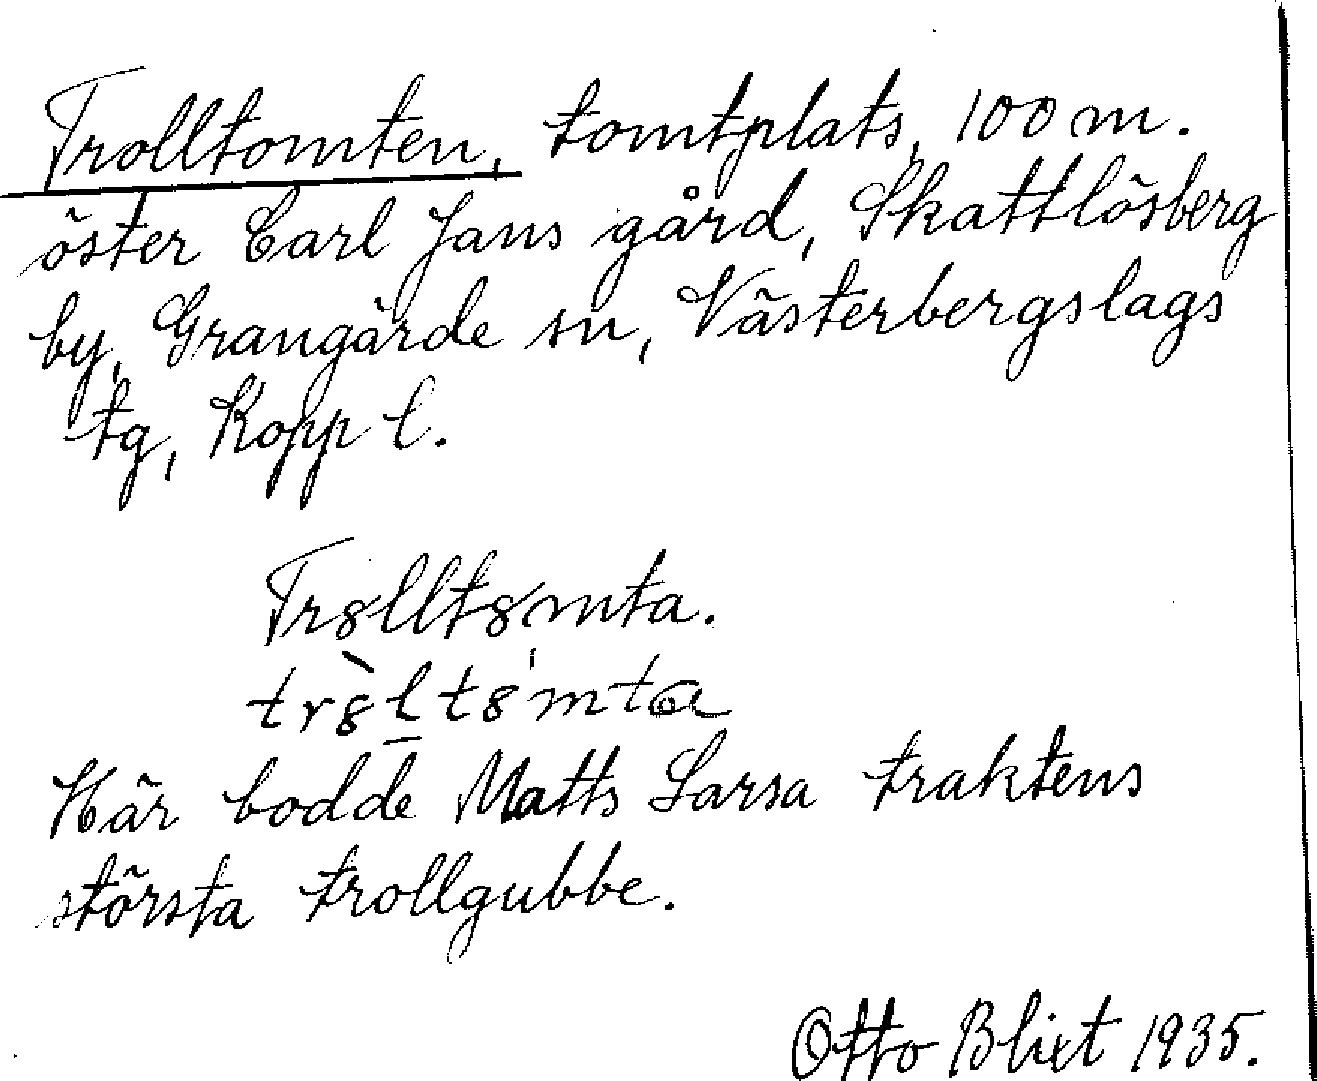 Trolltomten, tomtplats, 100 m.
öster Carl Jans gård, Skattlösberg
by, Grangärde sn, Västerbergslags
tg, Kopp l.
Tr8lltȣmta.
tr8̀ltȣ'mta
Här bodde Matts Larsa traktens
största trollgubbe.
Otto Blixt 1935.